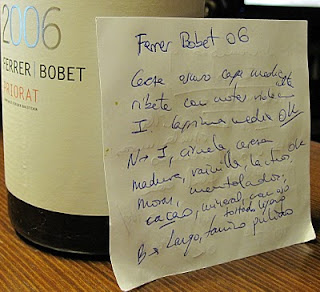 2006
FERRER | BOBET
PRIORAT
Ferrer Bobet 06
capa media
ribete con notas
I. lágrima media OK
N → I, ciruela, cereza
madura, vainilla, lactios, OK
moras, mentolados,
cacao, mineral,
tostado ligero
B → Largo, tanino pulido